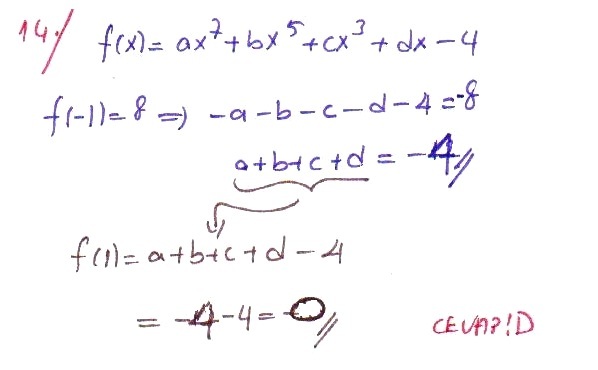 14./ f(x) = ax⁷ + bx⁵ + cx³ + dx - 4
f(-1) = 8 ⇒ -a - b - c - d - 4 = -8
a + b + c + d = -4
f(1) = a + b + c + d - 4
= -4 - 4 = -0
CEVAP! D